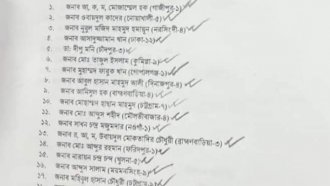 ১. জনাব আ, ক, ম, মোজাম্মেল হক (গাজীপুর-১)
২. জনাব ওবায়দুল কাদের (নোয়াখালী-৫)
৩. জনাব নুরুল মজিদ মাহমুদ হুমায়ূন (নরসিংদী-৪)
৪. জনাব আসাদুজ্জামান খান (ঢাকা-১২)
৫. ডা: দীপু মনি (চাঁদপুর-৩)
৬. জনাব মোঃ তাজুল ইসলাম (কুমিল্লা-৯)
৭. জনাব মুহাম্মদ ফারুক খান (গোপালগঞ্জ-১)
৮. জনাব আবুল হাসান মাহমুদ আলী (দিনাজপুর-৪)
৯. জনাব আনিসুল হক (ব্রাহ্মণবাড়িয়া-৪)
১০. জনাব মোহাম্মদ হাছান মাহমুদ (চট্টগ্রাম-৭)
১১. জনাব মোঃ আব্দুস শহীদ (মৌলভীবাজার-৪)
১২. জনাব সাধন চন্দ্র মজুমদার (নওগাঁ-১)
১৩. জনাব র, আ, ম, উবায়দুল মোকতাদির চৌধুরী (ব্রাহ্মণবাড়িয়া-৩)
১৪. জনাব মোঃ আব্দুর রহমান (ফরিদপুর-১)
১৫. জনাব নারায়ন চন্দ্র চন্দ (খুলনা-৫)
১৬. জনাব আব্দুস সালাম (ময়মনসিংহ-৯)
১৭. জনাব মহিবুল হাসান চৌধুরী (চট্টগ্রাম-৯)